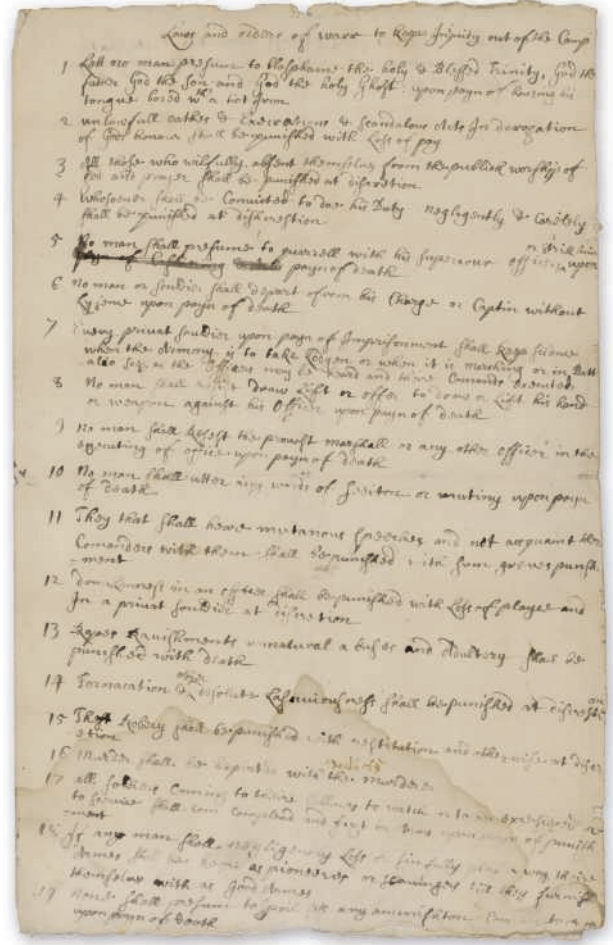 Laws and orders of warr to keepe Iniquity out of the Camp
1 Lett no man presume to blaspheame the holy & Blessed Trinity, God the
father God the Son and God the holy Ghost upon payn of having his
tongue bored wth a hot Iron
2 unlawfull oathes & Execrations & scandalous Acts In derogation
of Gods honour, shall be punished with Loss of pay
3 All those who wilfully absent themselves from the publick worship of
God and prayer shall be punished at discretion
4 whosoever shall be Convicted to doe his Duty negligently & Carelesly
shall be punished at diskrestion
5 No man shall presume to quarrell with his superiour officer upon
payn of death
6 No man or souldier shall depart from his Charge or Captin without
Lysence upon payn of death
7 Every privat souldier upon payn of Imprisonment shall keep silence
when the Army is to take Lodgen or when it is marching or in Batt
also soe as the officers may be heard and there Comands executed
8 No man shall draw Lift or offer to draw or Lift his hand
or weapon against his Officer upon payn of death
9 no man shall Resest the provost marshall or any other officer in the
executing of office upon payn of death
10 No man shall utter any words of sediton or mutiny upon payn
of death
11 They that shall heare mutanous speeches and not acquaint their
Comanders with them shall be punished with som greves punish
-ment
12 Dronkenness in an officer shall be punished with Loss of place and
In a privat souldier at discretion
13 Rapes Ravishments unnatural abuses and Adultery shall be
punished with death
14 Fornacation & other desolute Lasciviousness shall be punished at discretion
15 Theft Robery shall be punished with restitution and otherwise at discr
etion
16 Murder shall be expiated with the death of the Murderer
17 all soldiers Coming to theire Cullours to watch or to be exersised
to service shall com compleat and fixt in Arms upon payn of punish
ment
18 If any man shall negligently Loss or sinfully play away there
Armes shall be kept as pioneeres or scavingers till they furnish
themselves with as good Armes
19 None shall presume to spoil sell any amunition
upon payn of Death